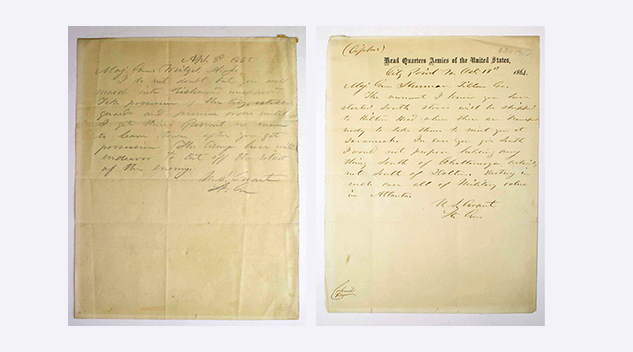 Apl. 3d 1865
Maj. Gen. Weitzel,
I do not doubt but you will
march into Richmond unopposed
Take possession of the city, establish
guards and preserve order until
I get there. Permit no
to leave town after you get
possession. The Army here will
endeavor to cut off the retreat
of the enemy.
U. S. Grant
Lt. Gen
(Cipher)
Head Quarters Armies of the United States,
City Point Va. Oct. 1864.
Maj. Gen. Sherman
The moment I know you have
started South stores will be shipped
to Hilton Head where there are transports
ready to take them to meet you at
Savannah. In case you go South
I would not propose holding any
thing South of Chattanooga certainly
not South of Dalton. Destroy in
such case all of Military value
in Atlanta.
U. S. Grant
Lt. Gen